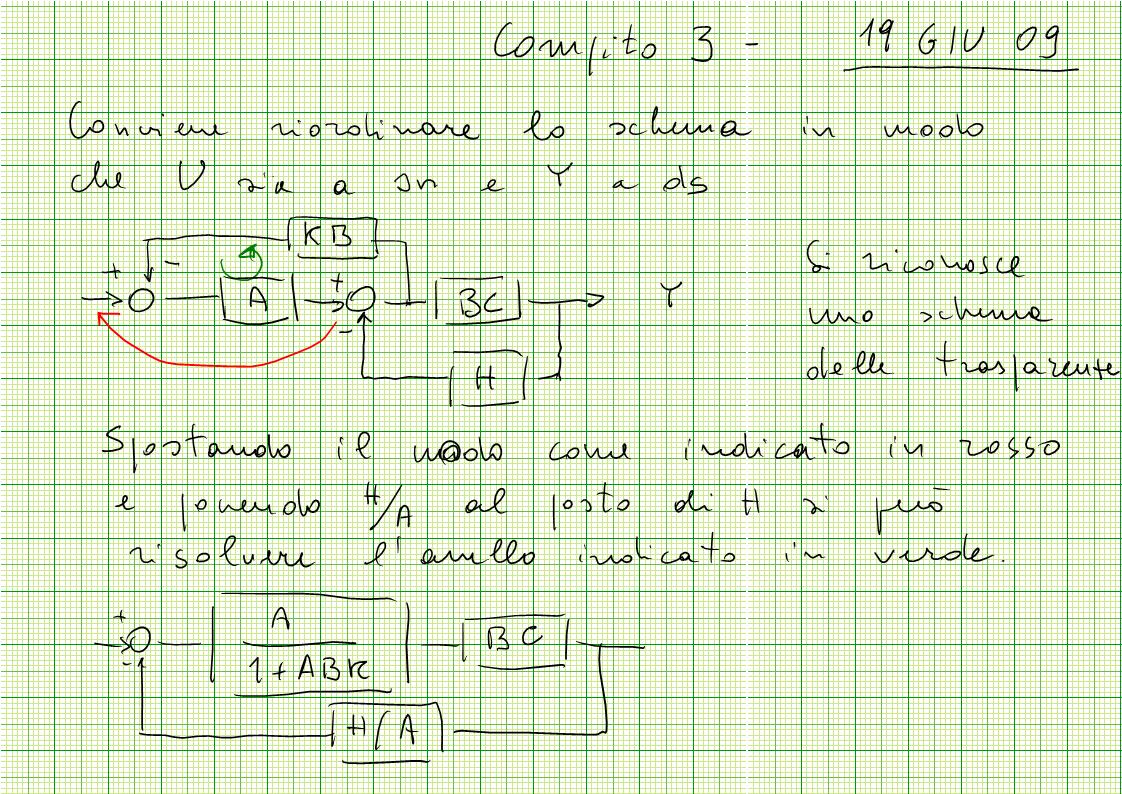 Compito 3 - 19 GIU 09
Conviene riordinare lo schema in modo
che U sia a sn e Y a ds
KB
+ - A + - BC Y
H
Si riconosce
uno schema
delle trasparente
Spostando il nodo come indicato in rosso
e ponendo H/A al posto di H si può
risolvere l'anello indicato in verde.
+ - A BC
1+ABK
H/A